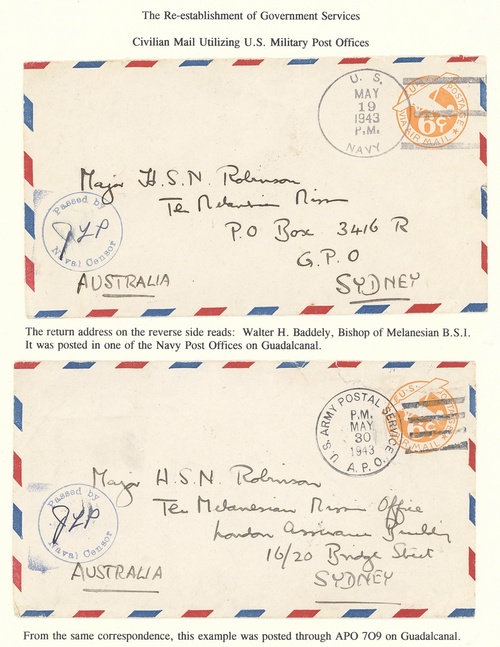 The Re-establishment of Government Services
Civilian Mail Utilizing U.S. Military Post Offices
U. S.
MAY
19
1943
P.M.
NAVY
U.S. POSTAGE
6¢
VIA AIR MAIL
Major H.S.N. Robinson
The Melanesian Mission
P.O Box 3416 R
G.P.O
SYDNEY
AUSTRALIA
Passed by
Naval Censor
The return address on the reverse side reads: Walter H. Baddely, Bishop of Melanesian B.S.I.
It was posted in one of the Navy Post Offices on Guadalcanal.
U. S. ARMY POSTAL SERVICE
P.M.
MAY
30
1943
A. P. O.
U.S.
6¢
AIR MAIL
Major H.S.N. Robinson
The Melanesian Mission Office
London Assurance Building
16/20 Bridge Street
SYDNEY
AUSTRALIA
Passed by
Naval Censor
From the same correspondence, this example was posted through APO 7O9 on Guadalcanal.